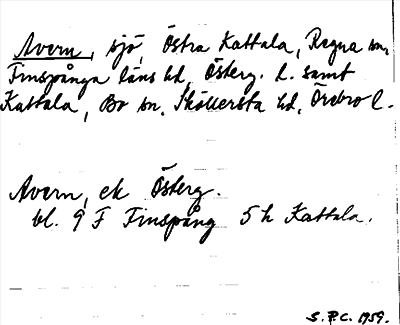 Avern, sjö, Östra Kattala, Regna sn,
Finspånga läns hd, Österg. l. samt
Kattala, Bo sn, Sköllersta hd, Örebro l.
Avern, ek Österg.
bl. 9 F Finspång 5 h Kattala.
S.P.C. 1959.